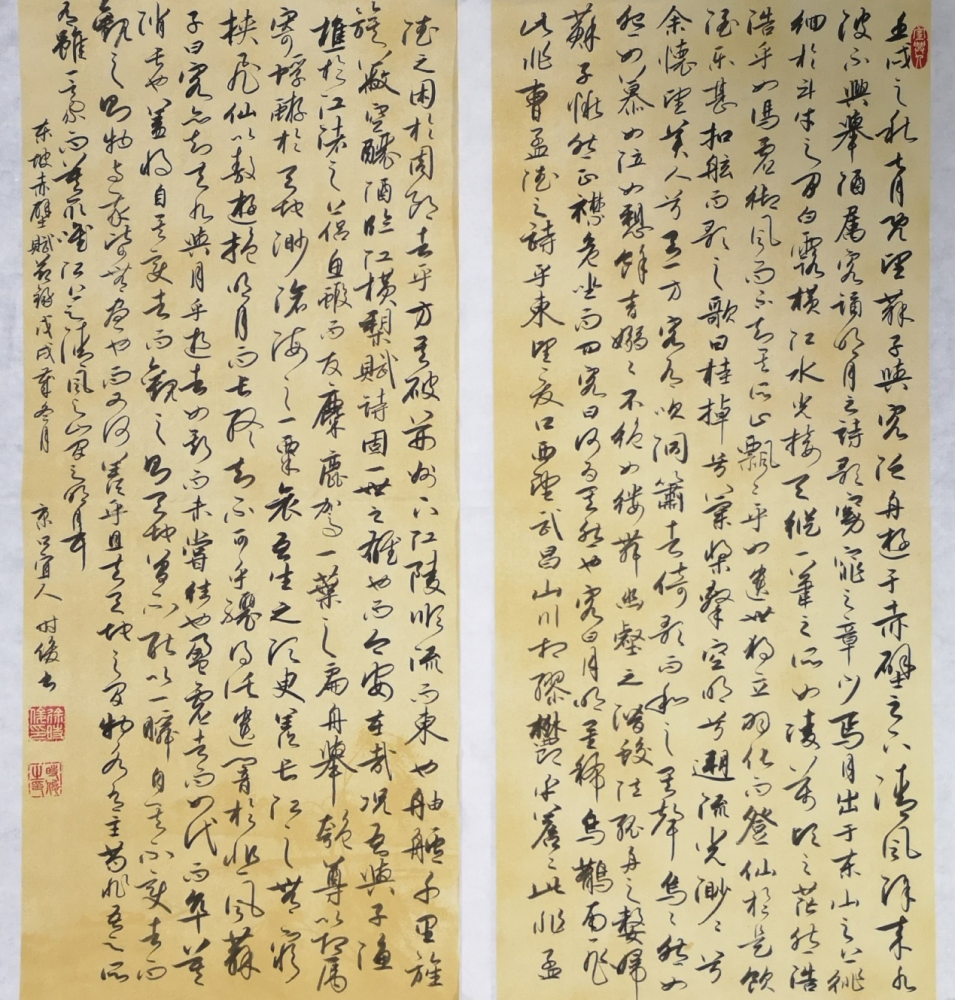 壬戌之秋七月既望蘇子與客泛舟遊于赤壁之下清風徐來水
波不興舉酒屬客誦明月之詩歌窈窕之章少焉月出于東山之上徘
徊於斗牛之間白露橫江水光接天縱一葦之所如凌萬頃之茫然浩
浩乎如馮虛御風而不知其所止飄〻乎如遺世獨立羽化而登仙於是飲
酒樂甚扣舷而歌之歌曰桂棹兮蘭槳擊空明兮遡流光渺〻兮
余懷望美人兮天一方客有吹洞簫者倚歌而和之其聲烏〻然如
怨如慕如泣如愬餘音嫋〻不絕如縷舞幽壑之潛蛟泣孤舟之嫠婦
蘇子愀然正襟危坐而問客曰何為其然也客曰月明星稀烏鵲南飛
此非曹孟德之詩乎東望夏口西望武昌山川相繆鬱乎蒼〻此非孟
德之困於周郎者乎方其破荊州下江陵順流而東也舳艫千里旌
旗蔽空釃酒臨江橫槊賦詩固一世之雄也而今安在哉況吾與子漁
樵於江渚之上侶魚蝦而友麋鹿駕一葉之扁舟舉匏尊以相屬
寄蜉蝣於天地渺滄海之一粟哀吾生之須臾羨長江之無窮
挾飛仙以遨遊抱明月而長終知不可乎驟得託遺響於悲風蘇
子曰客亦知夫水與月乎逝者如斯而未嘗往也盈虛者如代而卒莫
消長也蓋將自其變者而觀之則天地曾不能以一瞬自其不變者而
觀之則物與我皆無盡也而又何羨乎且夫天地之間物各有主苟非吾之所
有雖一毫而莫取唯江上之清風與山間之明月
东坡赤壁賦節錄戊戌年冬月 京口宜人 时俊书